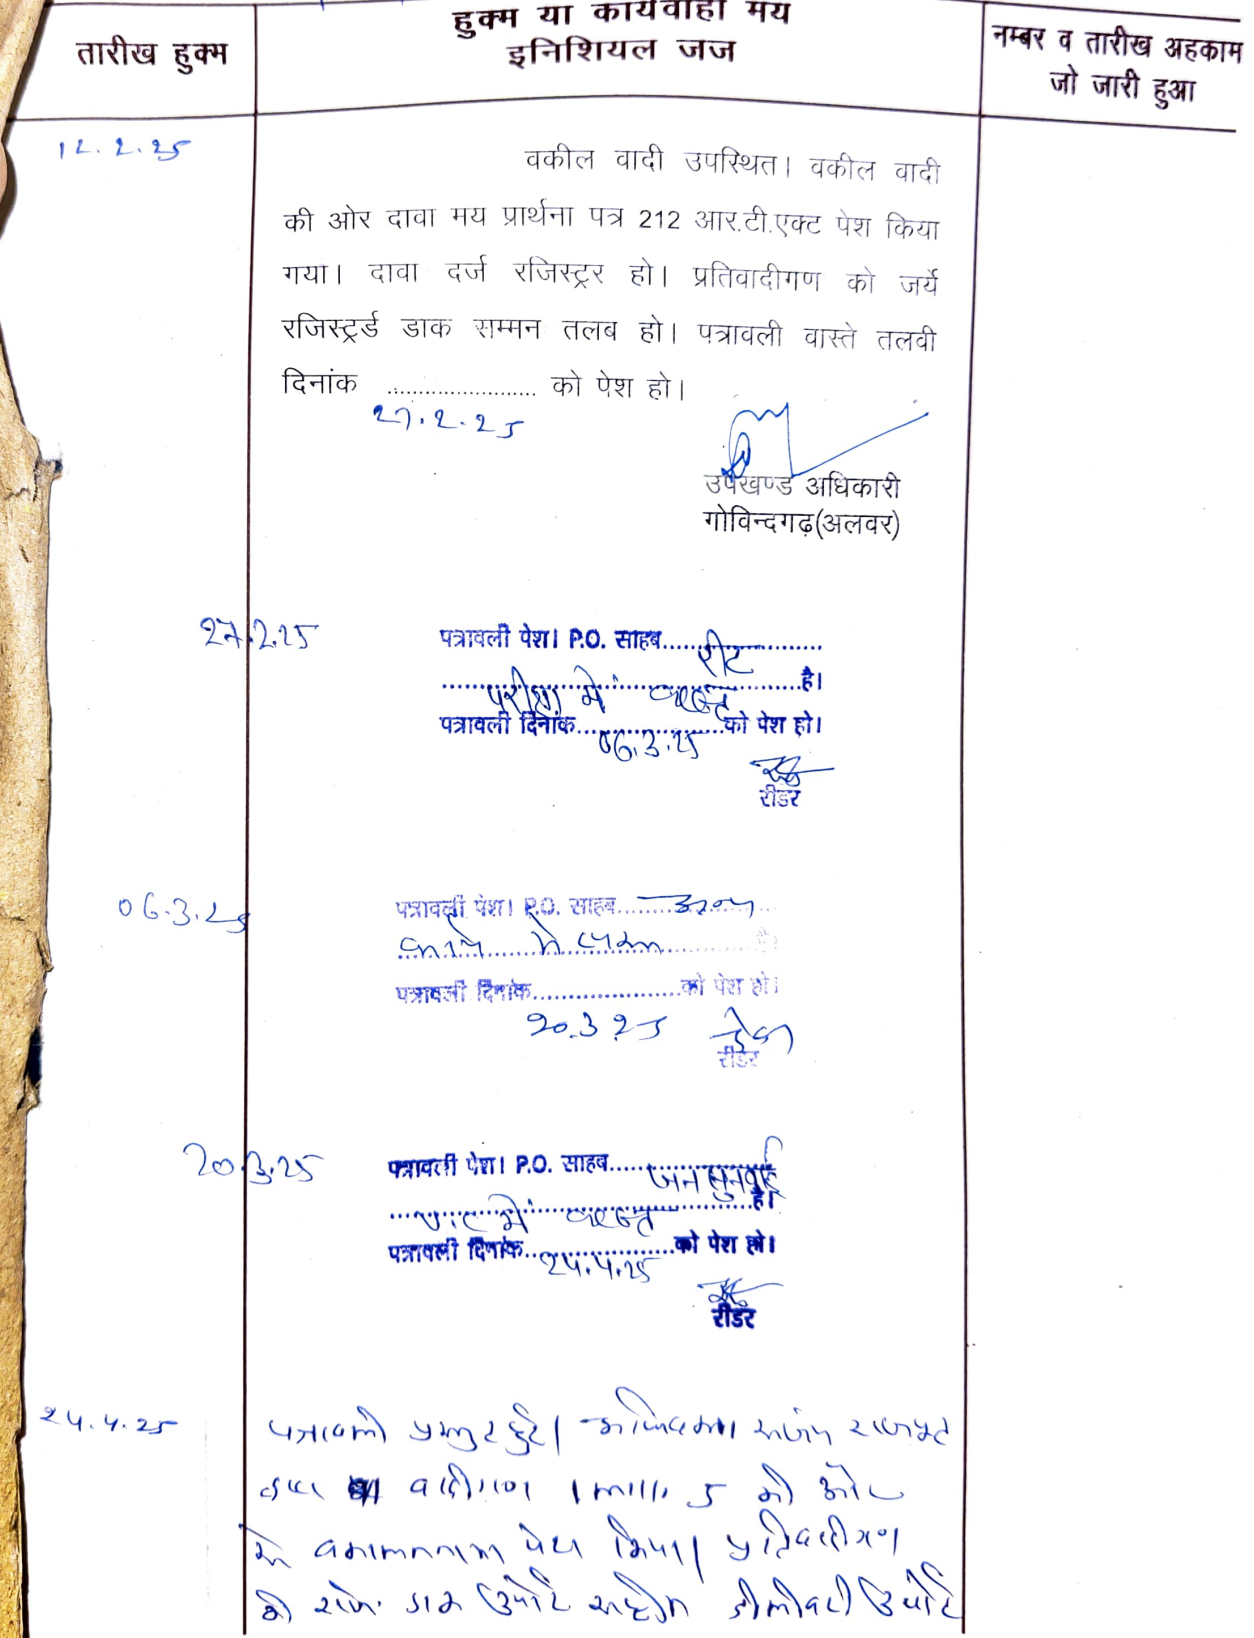 हुक्म या कार्यवाही मय
इनिशियल जज
तारीख हुक्म
नम्बर व तारीख अहकाम
जो जारी हुआ
12.2.25
वकील वादी उपस्थित। वकील वादी
की ओर दावा मय प्रार्थना पत्र 212 आर.टी.एक्ट पेश किया
गया। दावा दर्ज रजिस्ट्रर हो। प्रतिवादीगण को जर्ये
रजिस्ट्रर्ड डाक सम्मन तलब हो। पत्रावली वास्ते तलवी
दिनांक ........................ को पेश हो।
27.2.25
उपखण्ड अधिकारी
गोविन्दगढ़(अलवर)
27.2.25
पत्रावली पेश। P.O. साहब.......रीट
परीक्षा में व्यस्त है।
पत्रावली दिनांक 06.3.25 को पेश हो।
रीडर
06.3.25
पत्रावली पेश। P.O. साहब...... अन्य
कार्य में व्यस्त है।
पत्रावली दिनांक......................को पेश हो।
20.3.25
रीडर
20.3.25
पत्रावली पेश। P.O. साहब......जन सुनवाई
में व्यस्त है।
पत्रावली दिनांक 24.4.25 को पेश हो।
रीडर
24.4.25
पत्रावली प्रस्तुत हुई।
वादीगण 5 की ओर
से वकालतनामा पेश किया। प्रतिवादीगण
की रजि. डाक